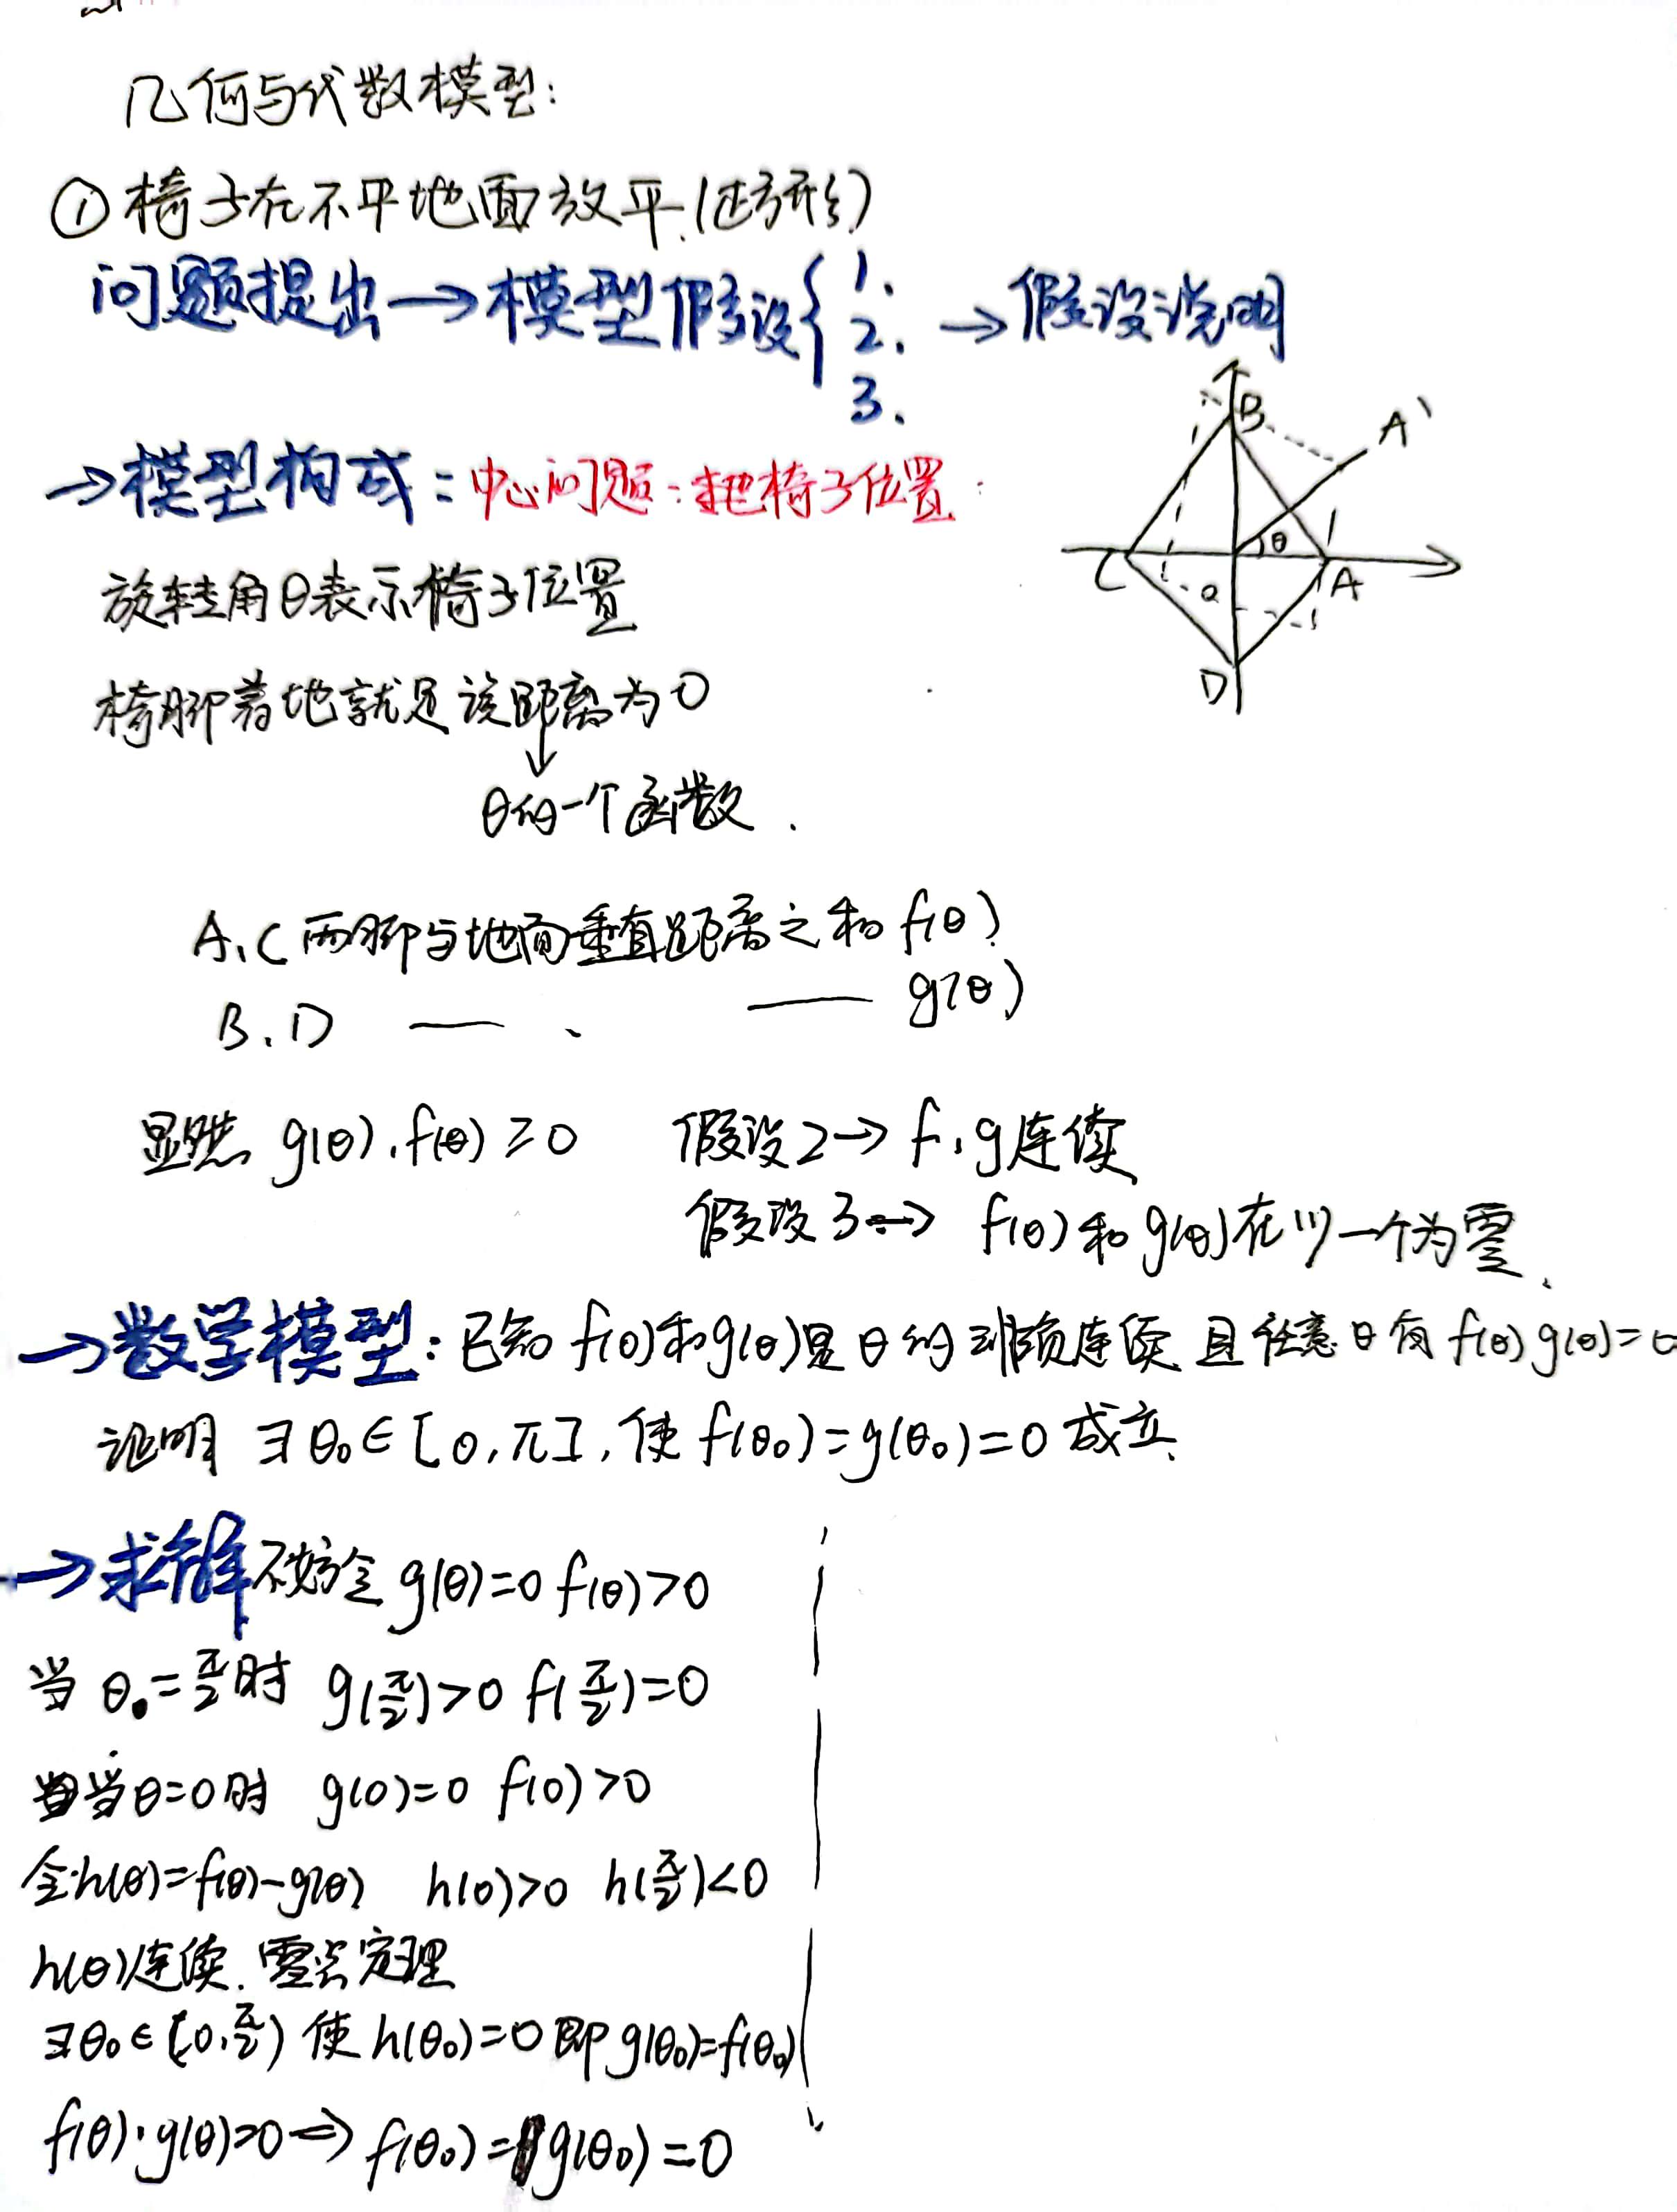 几何与代数模型:
① 椅子在不平地面放平.(正方形)
问题提出→模型假设{ 1. 2. 3. →假设说明
→模型构成: 中心问题:把椅子位置
旋转角θ表示椅子位置
椅脚着地就是该距离为0
↓
θ的一个函数.
B
A'
θ
C
O
A
D
A、C两脚与地面垂直距离之和 f(θ)
B、D —— 、 —— g(θ)
显然 g(θ).f(θ)≥0 假设2→ f,g连续
假设3→ f(θ)和g(θ)在 一个为零.
→数学模型:已知 f(θ)和g(θ)是θ的 连续 且任意θ有 f(θ)g(θ)=0
证明 ∃θ₀∈[0,π],使f(θ₀)=g(θ₀)=0成立.
→求解 不妨令 g(θ)=0 f(θ)>0
当 θ₀=π/2时 g(π/2)>0 f(π/2)=0
当θ=0时 g(0)=0 f(0)>0
令h(θ)=f(θ)-g(θ) h(0)>0 h(π/2)<0
h(θ)连续.零点定理
∃θ₀∈[0,π/2) 使 h(θ₀)=0 即g(θ₀)=f(θ₀)
f(θ)·g(θ)=0⇒ f(θ₀)=g(θ₀)=0